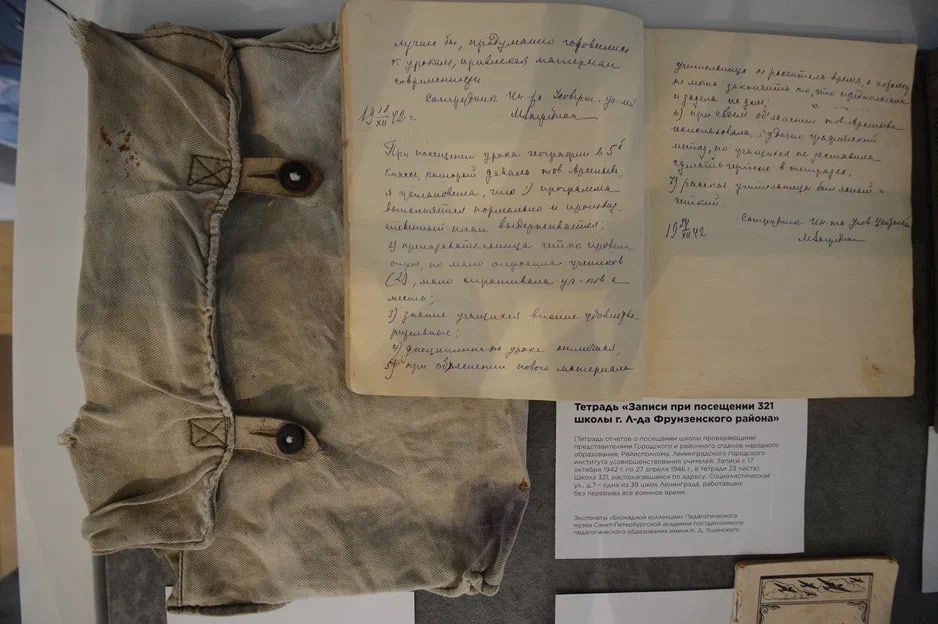 лучше бы, продуманно готовились
к урокам, привлекая материал
современности.
Сотрудник Ин-та Усоверш. уч-лей
19 18/XII 42 г.
При посещении урока географии в 5б
классе, который давала тов.
я установила, что 1) программа
выполняется нормально и производ-
ственный план выдерживается;
2) преподавательница четко провела
опрос, но мало опросила учеников
(2), мало спрашивала уч-ков с
места;
3) знание учащихся вполне удовлетво-
рительные;
4) дисциплина на уроке отличная,
5) при объяснении нового материала
учительница не рассчитала время, а поэтому
не могла закончить то, что предполагала
и задала на дом;
6) при своем объяснении тов.
использовала, удачно графический
метод, но учащихся не заставила
сделать чертеж в тетрадях,
7) рассказ учительницы был ясный и
четкий.
Сотрудник Ин-та Усов.
19 24/XII 42
Тетрадь «Записи при посещении 321
школы г. Л-да Фрунзенского района»
(Тетрадь отчетов о посещении школы проверяющими
представителями Городского и районного отделов народного
образования, Райисполкома, Ленинградского городского
института усовершенствования учителей. Записи с 17
октября 1942 г. по 27 апреля 1946 г., в тетради 23 листа).
Школа 321, располагавшаяся по адресу: Социалистическая
ул., д.7 – одна из 39 школ Ленинграда, работавших
без перерыва все военное время.
Экспонаты «Блокадной коллекции» Педагогического
музея Санкт-Петербургской академии постдипломного
педагогического образования имени К. Д. Ушинского